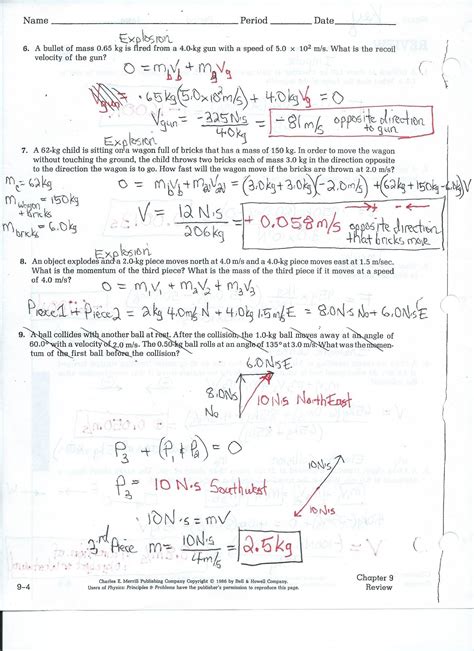 Name Period Date
Explosion
6. A bullet of mass 0.65 kg is fired from a 4.0-kg gun with a speed of 5.0 × 10² m/s. What is the recoil
velocity of the gun?
0 = m_b V_b + m_g V_g
.65kg(5.0x10² m/s) + 4.0kg V_g = 0
V_gun = -325N·s / 4.0kg = -81 m/s opposite direction to gun
Explosion
7. A 62-kg child is sitting on a wagon full of bricks that has a mass of 150 kg. In order to move the wagon
without touching the ground, the child throws two bricks each of mass 3.0 kg in the direction opposite
to the direction the wagon is to go. How fast will the wagon move if the bricks are thrown at 2.0 m/s?
m_c = 62kg
m_wagon + bricks = 150kg
m_bricks = 6.0kg
0 = m₁V₁ + m₂V₂ = (3.0kg+3.0kg)(-2.0m/s) + (62kg + 150kg - 6kg)V
V = 12 N·s / 206kg = +0.058 m/s opposite direction that bricks move
Explosion
8. An object explodes and a 2.0-kg piece moves north at 4.0 m/s and a 4.0-kg piece moves east at 1.5 m/sec.
What is the momentum of the third piece? What is the mass of the third piece if it moves at a speed
of 4.0 m/s?
0 = m₁V₁ + m₂V₂ + m₃V₃
Piece 1 + Piece 2 = 2kg 4.0m/s N + 4.0kg 1.5m/s E = 8.0N·s No + 6.0N·s E
9. A ball collides with another ball at rest. After the collision, the 1.0-kg ball moves away at an angle of
60.0° with a velocity of 2.0 m/s. The 0.50-kg ball rolls at an angle of 135° at 3.0 m/s. What was the momen-
tum of the first ball before the collision?
6.0N·s E
8.0N·s
No
10N·s NorthEast
P₃ + (P₁ & P₂) = 0
P₃ = 10 N·s Southwest
10N·s
10N·s
10N·s = mV
3rd Piece m = 10N·s / 4m/s = 2.5kg
Charles E. Merrill Publishing Company Copyright © 1986 by Bell & Howell Company.
Users of Physics: Principles & Problems have the publisher's permission to reproduce this page.
9-4
Chapter 9
Review